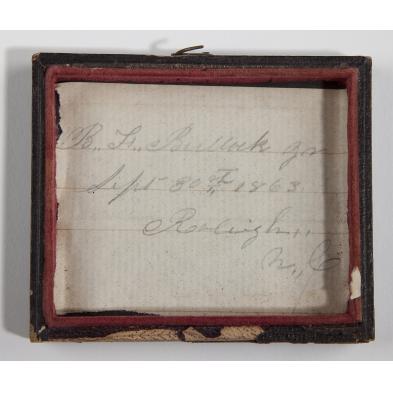 B,, F,, Bullock
Sept 30th 1863
Raleigh,,
N,, C